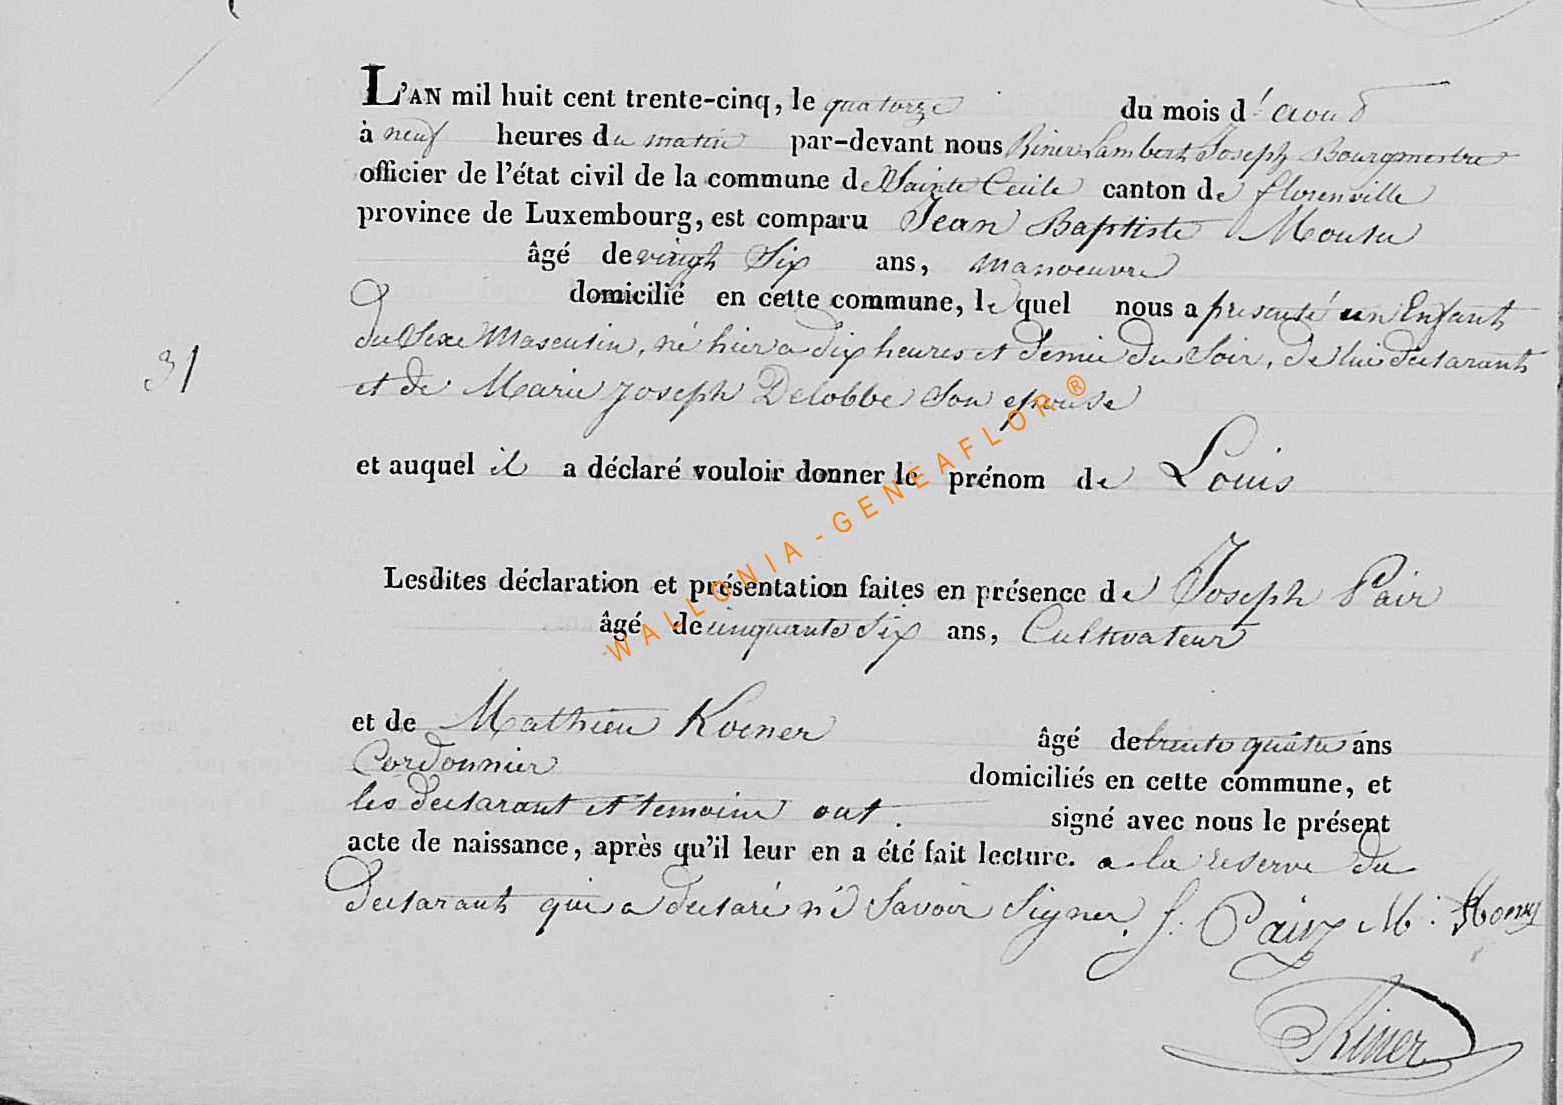 L'AN mil huit cent trente-cinq, le quatorze du mois d'aout
à neuf heures du matin par-devant nous Riner Lambert Joseph Bourgmestre
officier de l'état civil de la commune de Sainte Cecile canton de florenville
province de Luxembourg, est comparu Jean Baptiste Mousu
âgé de vingt Six ans, manoeuvre
domicilié en cette commune, le quel nous a presenté un Enfant
du Sexe Masculin, né hier a dix heures et demie du Soir, de lui declarant
31
et de Marie joseph Delobbe Son epouse
et auquel il a déclaré vouloir donner le prénom de Louis
Lesdites déclaration et présentation faites en présence de Joseph Pair
âgé de cinquante Six ans, Cultivateur
et de Mathieu Koener âgé de trente quatre ans
Cordonnier domiciliés en cette commune, et
les declarant et temoins ont. signé avec nous le présent
acte de naissance, après qu'il leur en a été fait lecture. a la reserve du
declarant qui a declaré né Savoir Signer. J. Pair M. Koener
Riner
WALLONIA-GENEAFLOR®